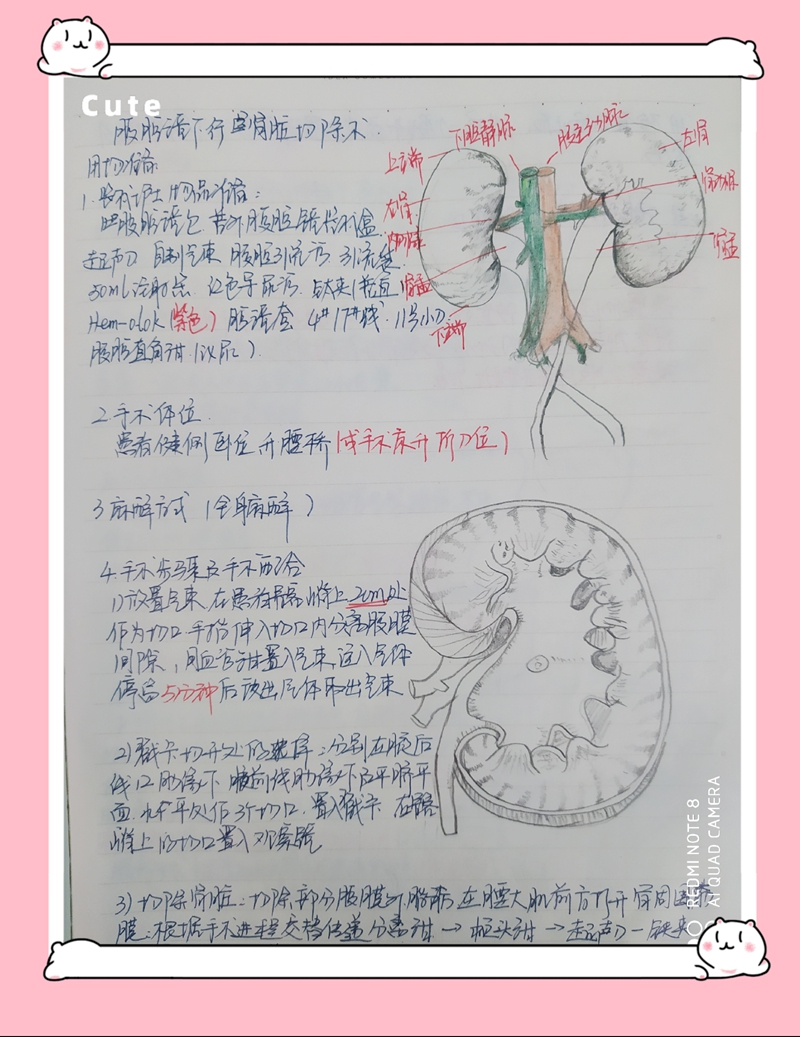 Cute
腹腔镜下行单肾脏切除术
用物准备
1. 器械护士物品准备:
腹腔镜包 普外腹腔镜器械盒
超声刀 自制气束 腹腔引流管 引流袋
50ml注射器 红色导尿管 钛夹
Hem-olok(紫色) 腔镜套 4# 17#线. 11号小刀
腹腔直角钳(泌尿)
2. 手术体位.
患者健侧卧位 升腰桥(或手术床升折刀位)
3 麻醉方式 (全身麻醉)
4. 手术步骤及手术配合
1) 放置气束 在患者髂嵴上2cm处
作为切口 手指伸入切口内分离腹膜
间隙, 用血管钳置入气束, 注入气体
停留5分钟后放出气体取出气束
2) 戳卡切开处的选择: 分别在腋后
线12肋缘下 腋前线肋缘下及平脐平
面. 水平处作3个切口. 置入戳卡 在髂
嵴上的切口置入观察镜
3) 切除肾脏: 切除部分腹膜外脂肪 在腰大肌前方打开肾周围筋
膜: 根据手术进程交替传递分离钳 → 超声刀 — 钛夹
上端
下腔静脉
腹主动脉
左肾
右肾
肾动脉
肾盂
下端
REDMI NOTE 8
AI QUAD CAMERA